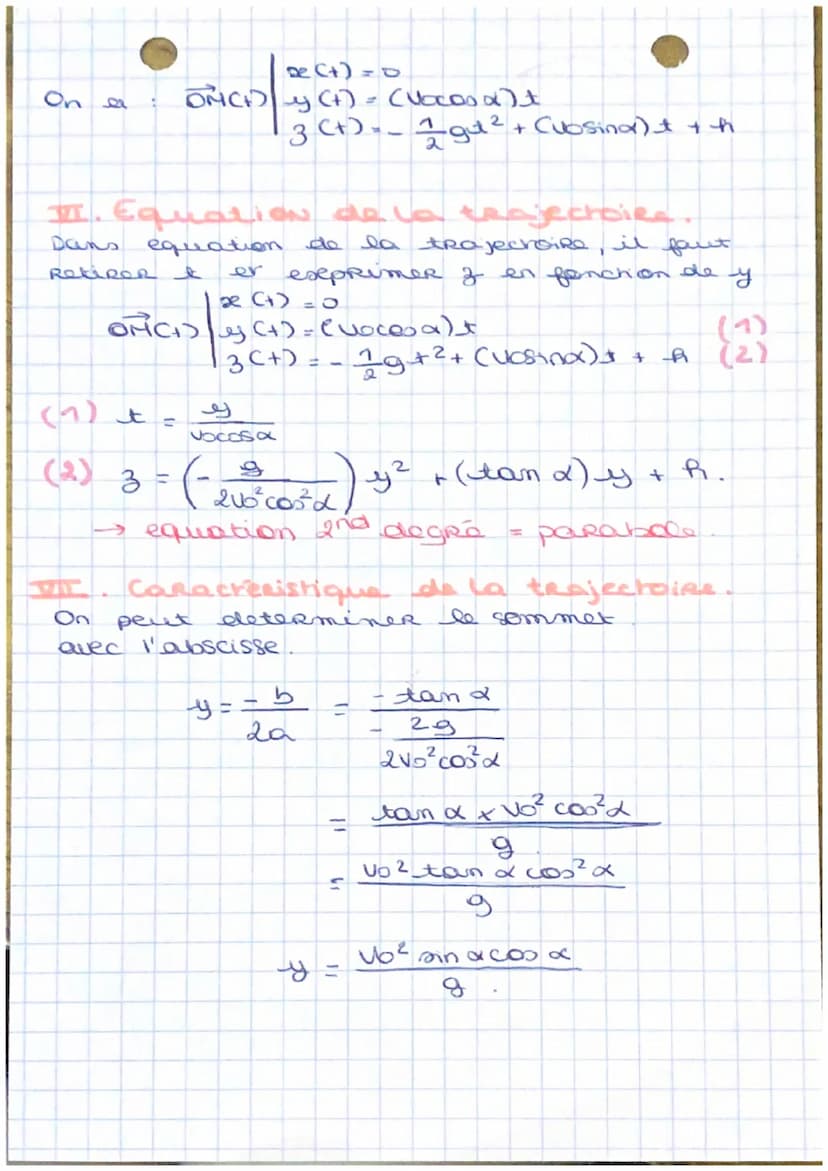 x(t) = 0
On a : OM(t) y(t) = (V0cosα)t
z(t) = - 1/2 gt² + (V0sinα)t + h
VI. Equation de la trajectoire.
Dans equation de la trajectoire, il faut
retirer t et exprimer z en fonction de y
x(t) = 0
OM(t) y(t) = (V0cosα)t (1)
z(t) = - 1/2 gt² + (V0sinα)t + h (2)
(1) t = y / V0cosα
(2) z = (- g / 2V0²cos²α) y² + (tan α) y + h.
→ equation 2nd degré = parabole.
VII. Caractéristique de la trajectoire.
On peut determiner le sommet
avec l'abscisse.
y = -b / 2a = - tan α / (- 2g / 2V0²cos²α)
= tan α x V0² cos²α / g
= V0² tan α cos² α / g
y = V0² sin α cos α / g.